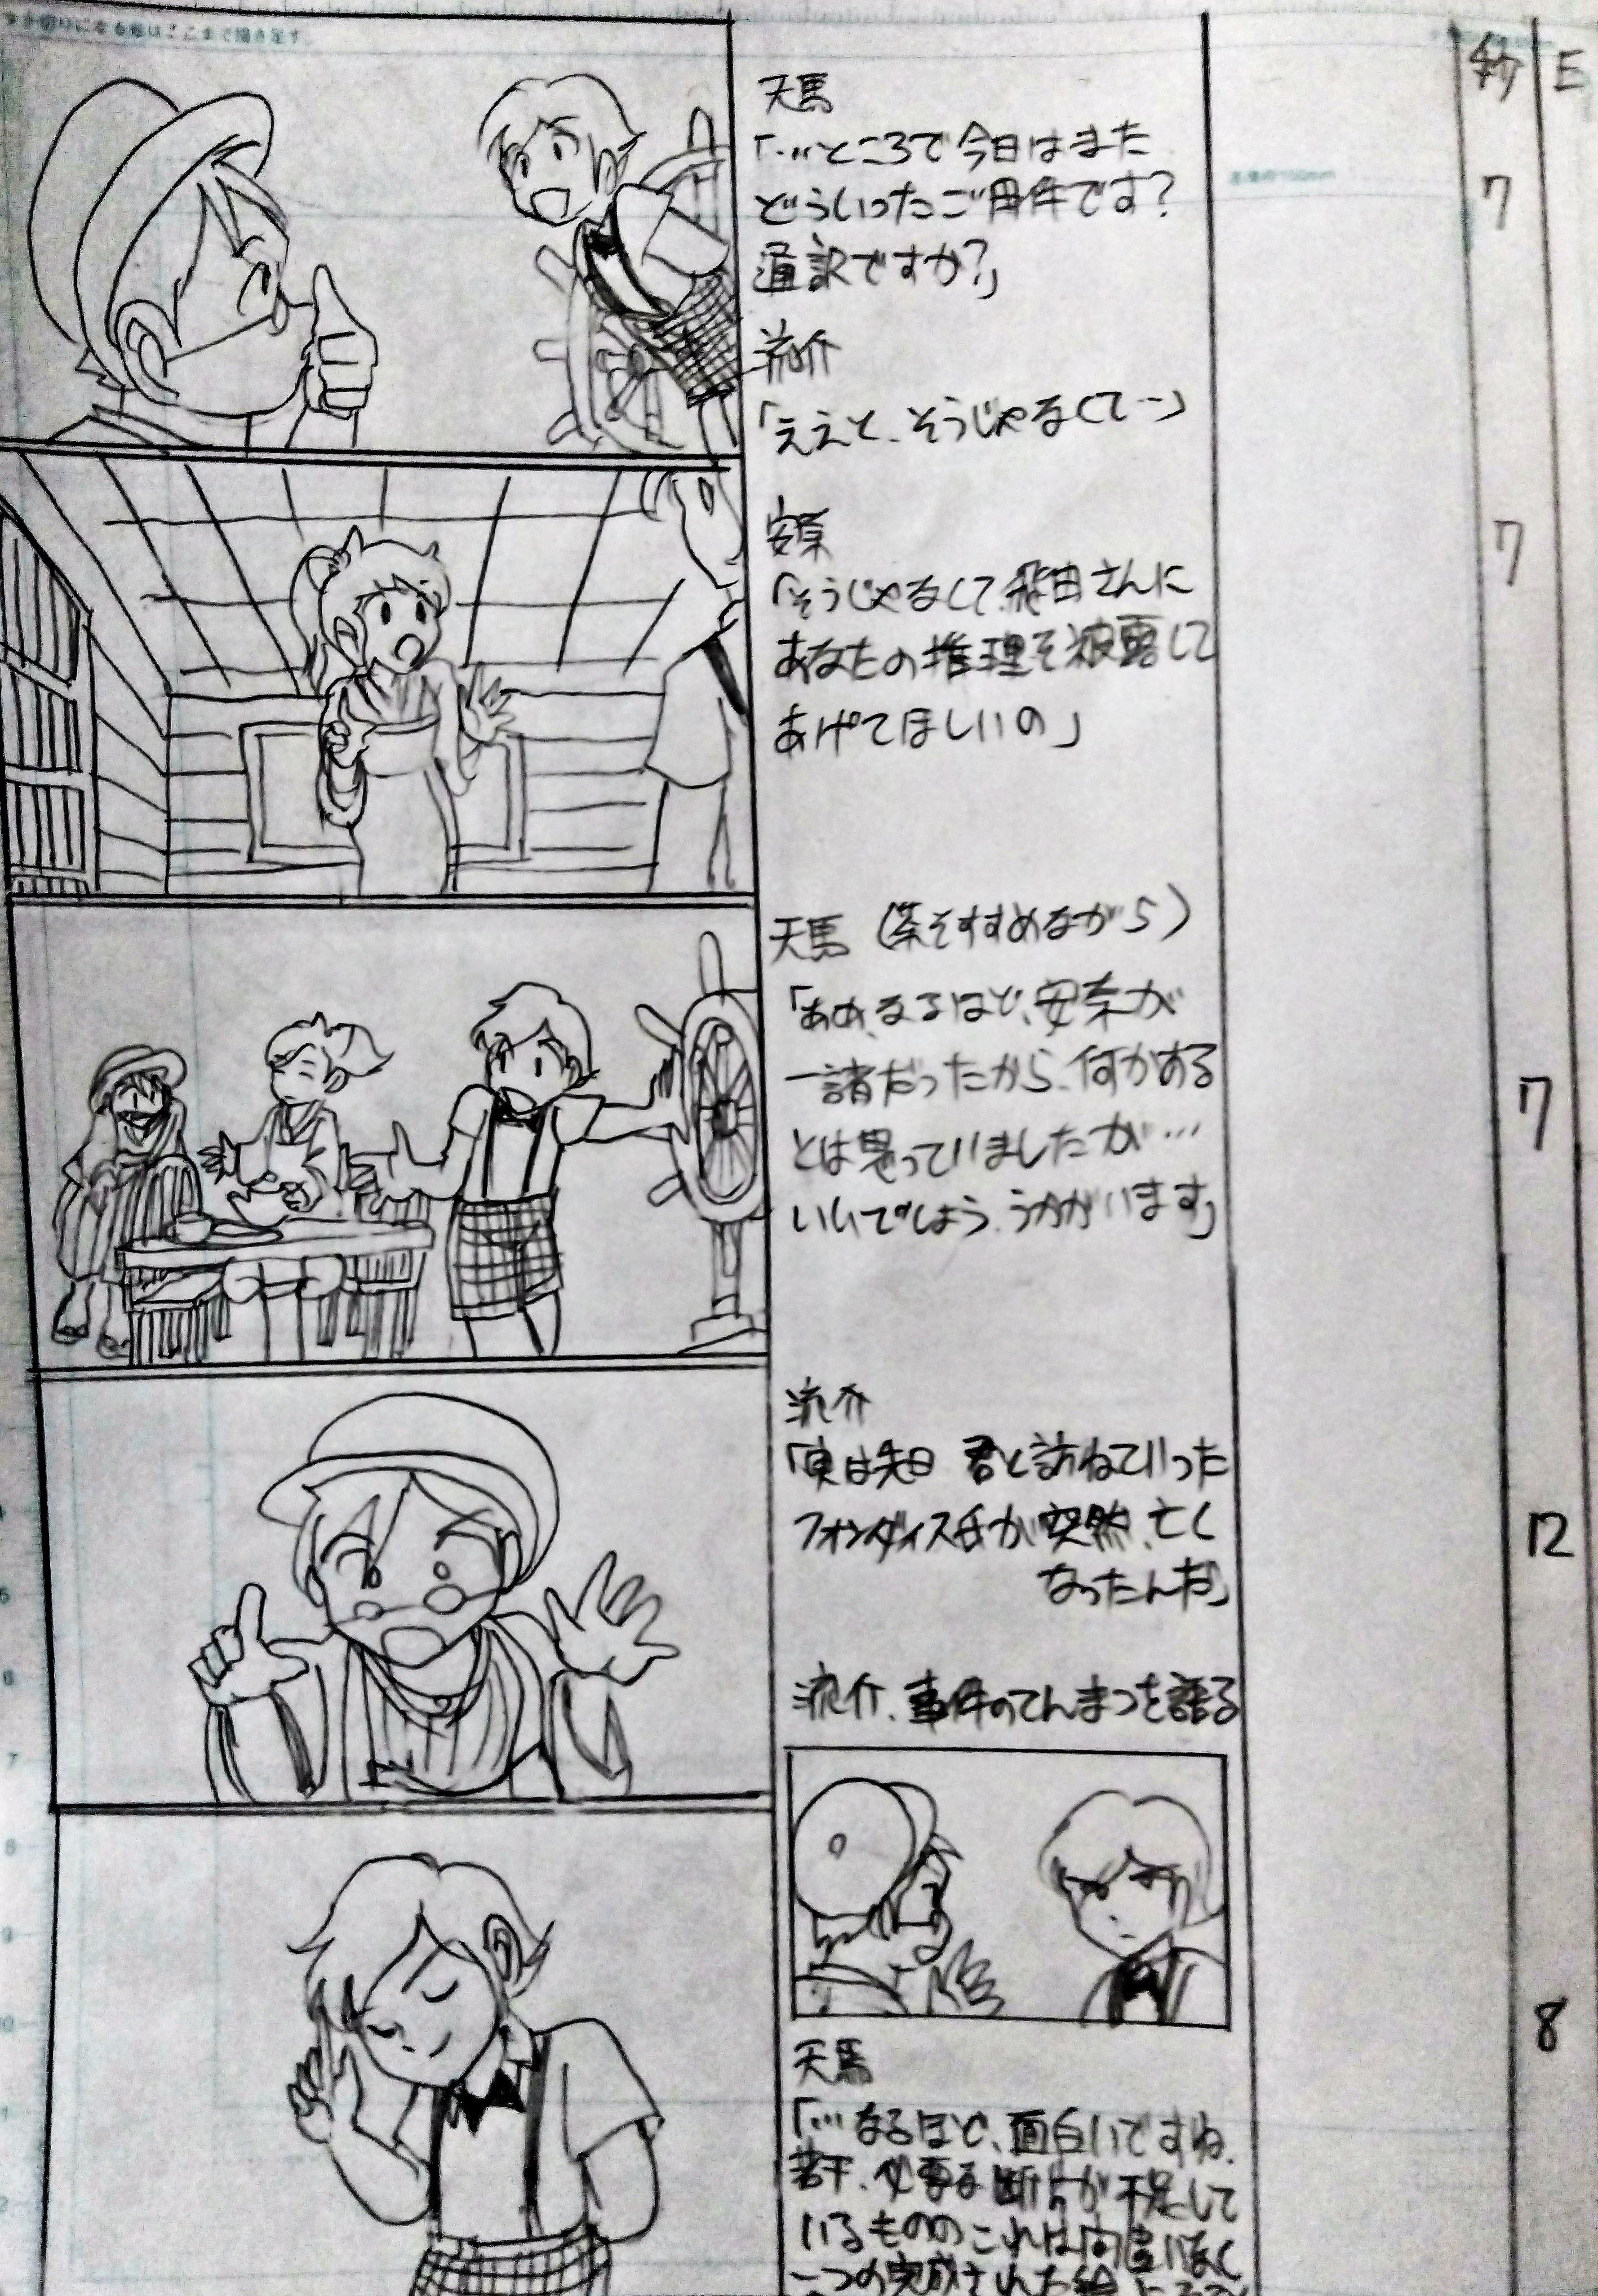 ※予切りになる絵はここまで描き足す。
秒
天馬
「…ところで今日はまた
どういったご用件です?
通訳ですか?」
7
流介
「ええと、そうじゃなくて…」
安奈
「そうじゃなくて、飛田さんに
あなたの推理を披露して
あげてほしいの」
7
天馬(茶をすすめながら)
「ああ、なるほど、安奈が
一諸だったから、何かある
とは思っていましたが…
いいでしょう、うかがいます」
7
流介
「実は先日 君と訪ねていった
フォンダイス氏が突然、亡く
なったんだ」
12
流介、事件のてんまつを語る
8
天馬
「…なるほど、面白いですね、
若干、必要な断片が不足して
いるもののこれは間違いなく
一つの完成された絵